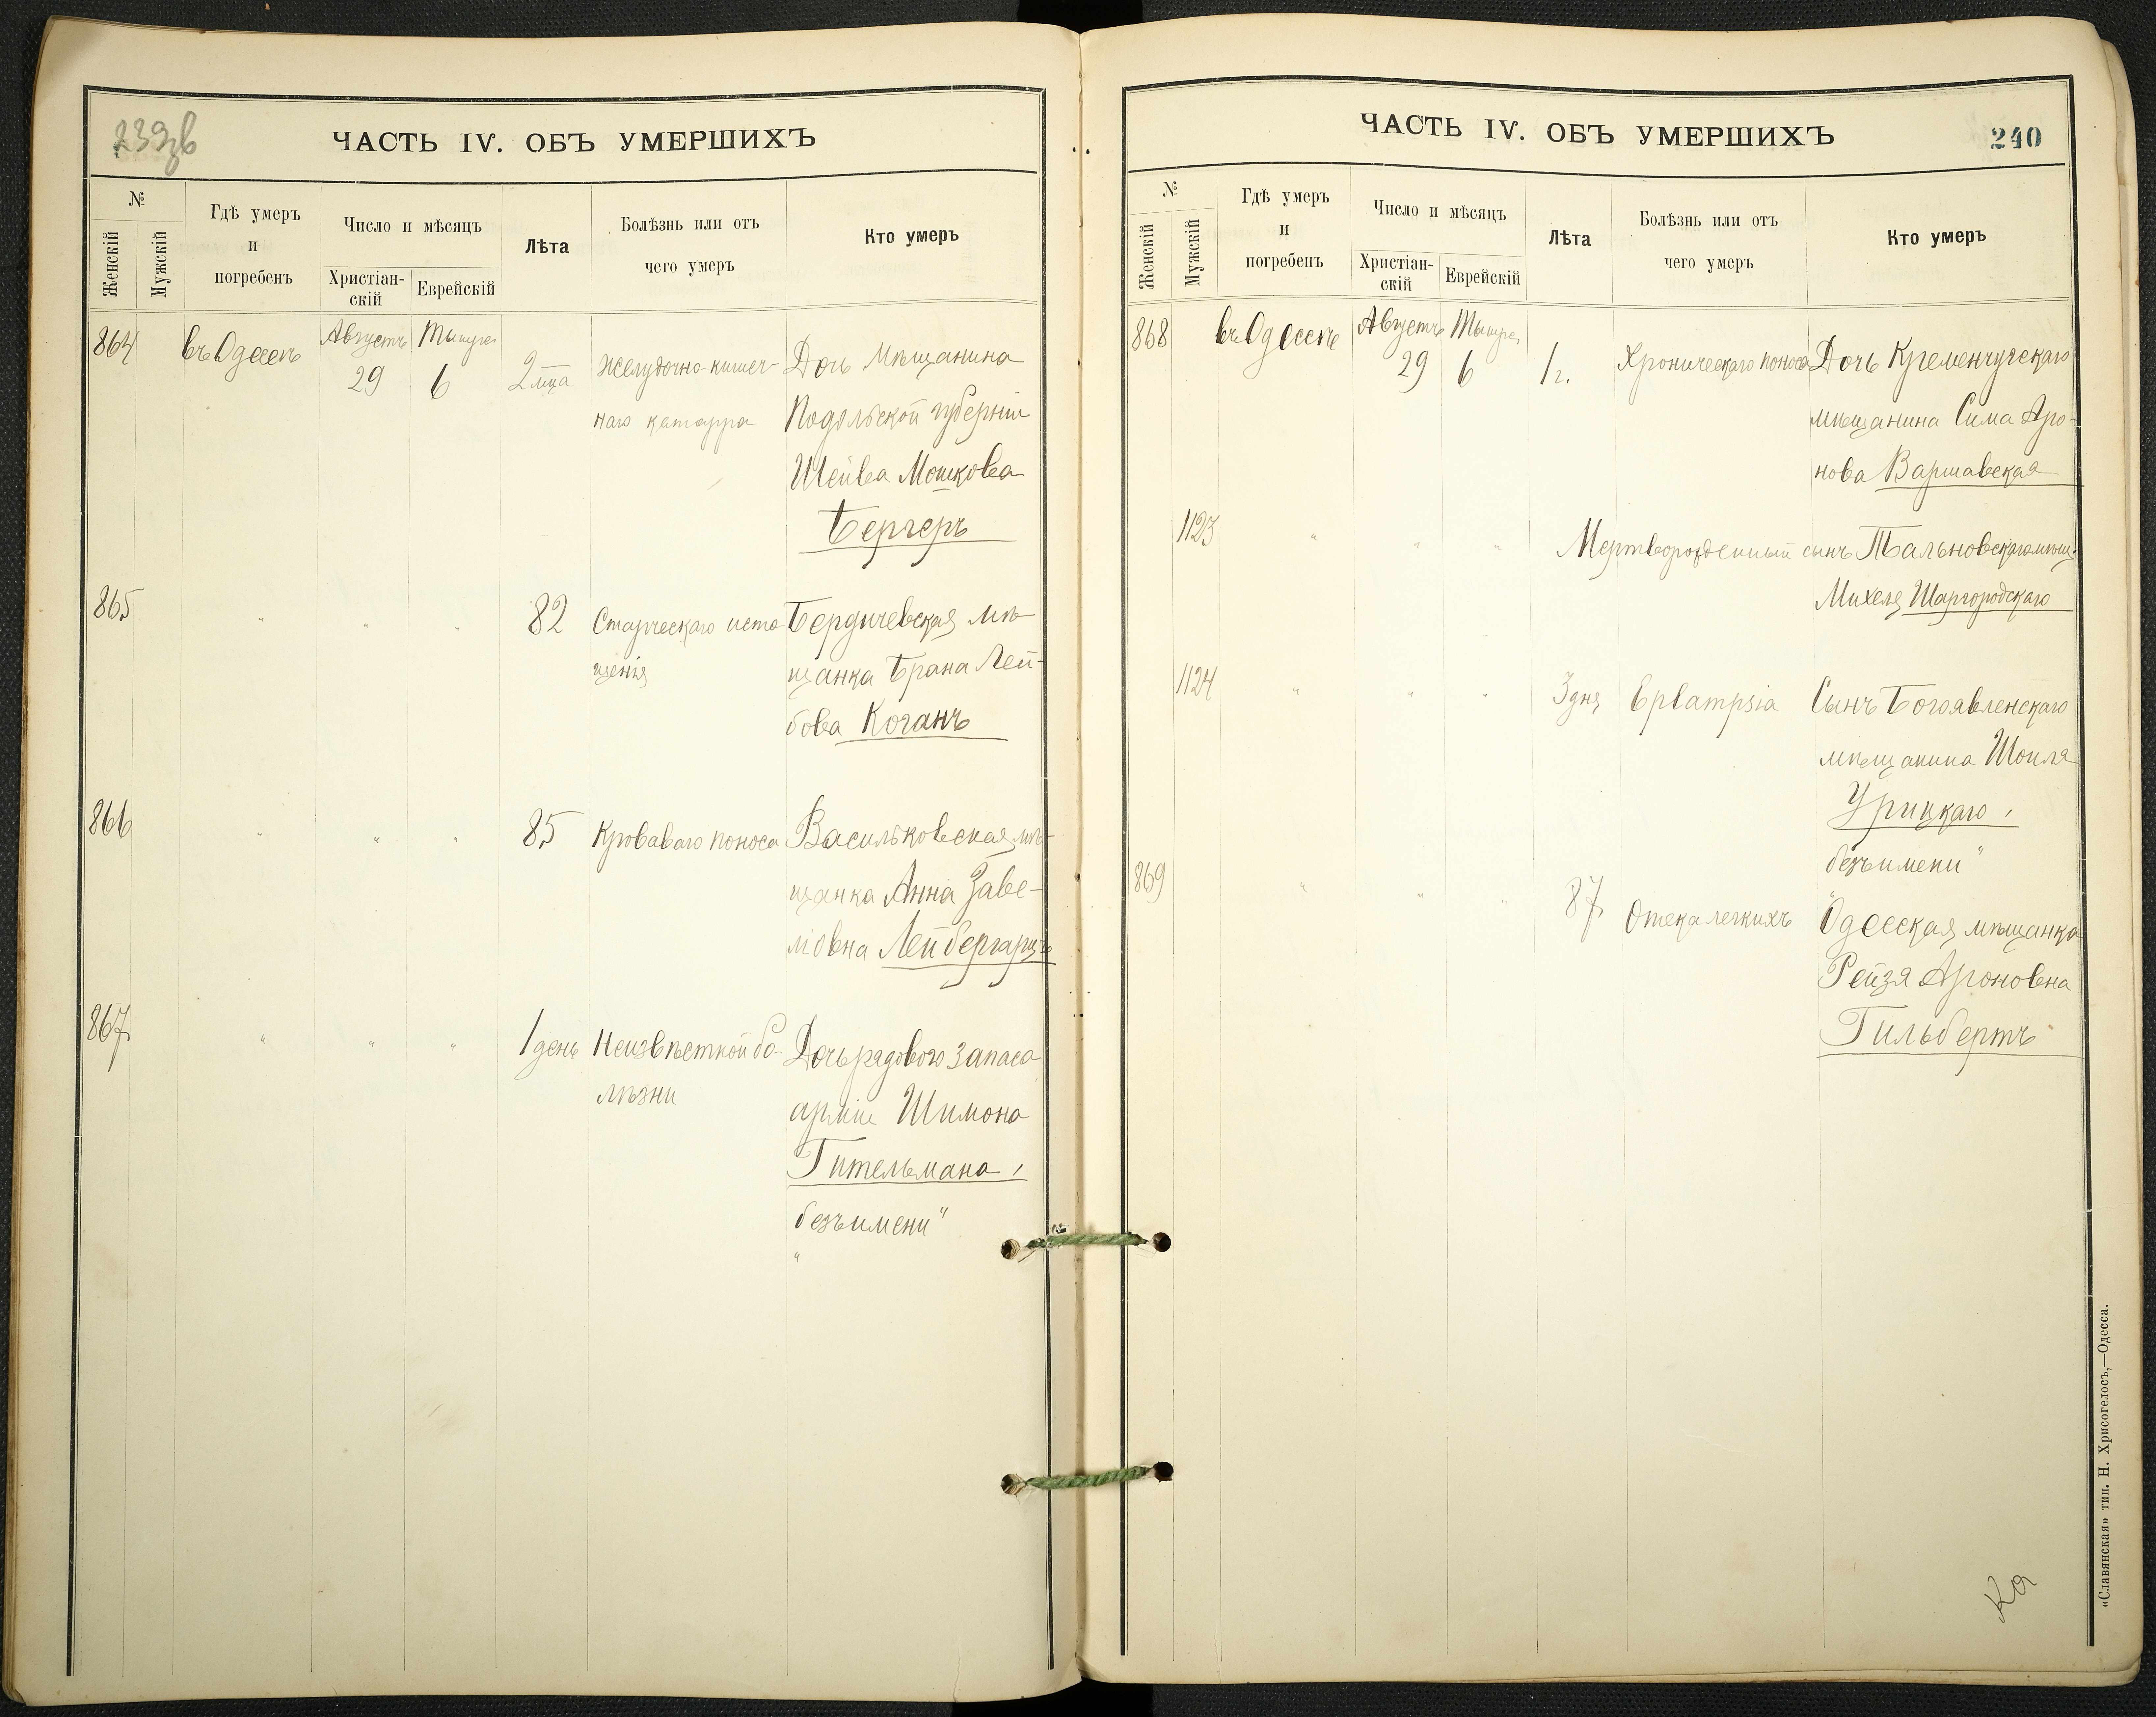 239зв
ЧАСТЬ IV. ОБЪ УМЕРШИХЪ
№
Женскій
Мужскій
Гдѣ умеръ
и
погребенъ
Число и мѣсяцъ
Христіан-
скій
Еврейскій
Лѣта
Болѣзнь или отъ
чего умеръ
Кто умеръ
864 въ Одессѣ Августъ Тышре 2 мца Желудочно-кишеч- Дочь Мѣщанина
29 6 наго катарра Подольской губерніи
Шейва Мошкова
Бергеръ
865 " " " 82 Старческаго исто- Бердичевская мѣ-
щенія щанка Брана Лей-
бова Коганъ
866 " " " 85 Кроваваго поноса Васильковская мѣ-
щанка Анна Заве-
мовна Лейбергарцъ
867 " " " 1 день Неизвѣстной бо- Дочь рядового запаса
лѣзни арміи Шимона
Гительмана,
безъ имени"
"
ЧАСТЬ IV. ОБЪ УМЕРШИХЪ
240
№
Женскій
Мужскій
Гдѣ умеръ
и
погребенъ
Число и мѣсяцъ
Христіан-
скій
Еврейскій
Лѣта
Болѣзнь или отъ
чего умеръ
Кто умеръ
868 въ Одессѣ Августъ Тышре 1 г. Хроническаго поноса Дочь Кременчугскаго
29 6 мѣщанина Сима Аро-
нова Варшавская
1123 " " " Мертворожденный сынъ Тальновскаго мѣщ.
Михеля Шаргородскаго
1124 " " " 3 дня Eplampsia Сынъ Богоявленскаго
мѣщанина Шоиля
Урицкаго,
безъ имени"
"
869 " " " 87 Отека легкихъ Одесская мѣщанка
Рейзя Ароновна
Гильбертъ
«Славянская» тип. Н. Хрисогелосъ,—Одесса.